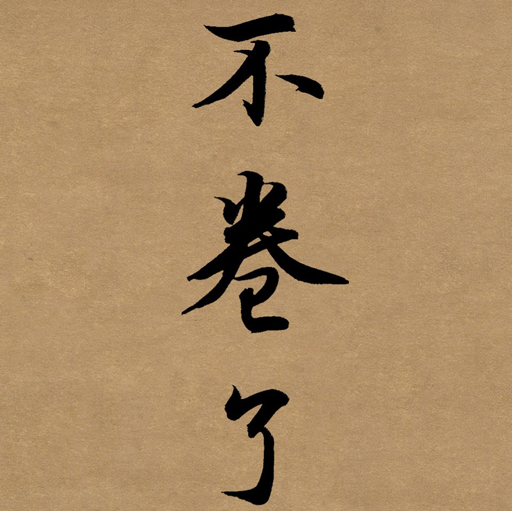 不卷了